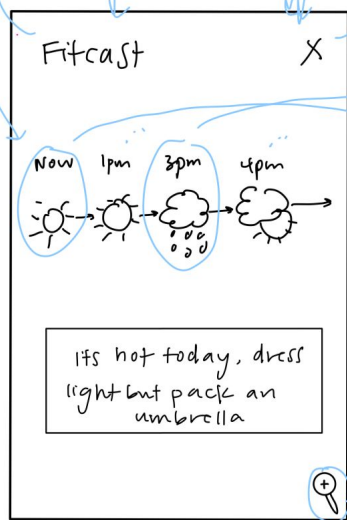 Fitcast X
Now 1pm 3pm 4pm
Its hot today, dress
light but pack an
umbrella